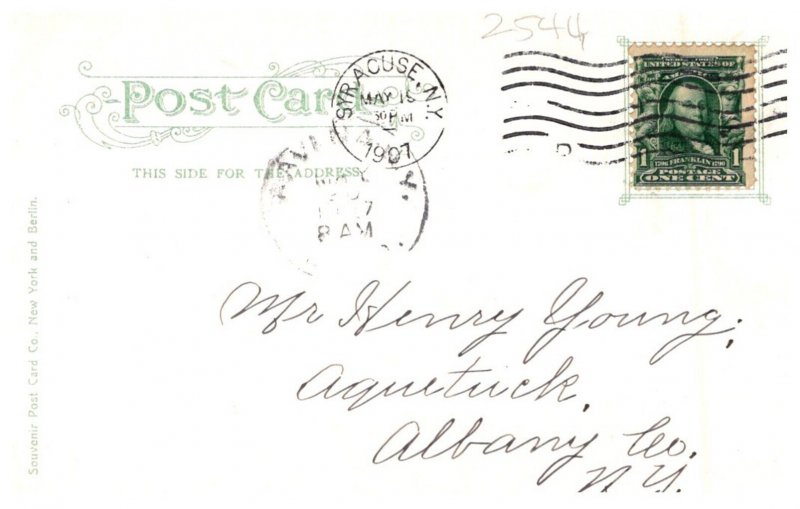 2544
Post Card
THIS SIDE FOR THE ADDRESS
SYRACUSE, N.Y.
MAY 15
30 PM
1907
8 AM
SERIES 1902
UNITED STATES OF
AMERICA
1 1706 FRANKLIN 1790 1
POSTAGE
ONE CENT
Mr Henry Young,
Aquetuck,
Albany Co.
N.Y.
Souvenir Post Card Co., New York and Berlin.